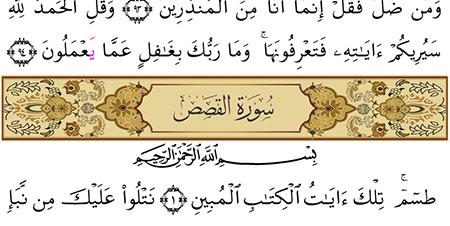 وَمَن ضَلَّ فَقُلْ إِنَّمَا أَنَا۠ مِنَ ٱلْمُنذِرِينَ ﴿٩٢﴾ وَقُلِ ٱلْحَمْدُ لِلَّهِ
سَيُرِيكُمْ ءَايَٰتِهِۦ فَتَعْرِفُونَهَا ۚ وَمَا رَبُّكَ بِغَٰفِلٍ عَمَّا يَعْمَلُونَ ﴿٩٤﴾
سُورَةُ القَصَصِ
بِسْمِ ٱللَّهِ ٱلرَّحْمَٰنِ ٱلرَّحِيمِ
طسٓمٓ ۚ تِلْكَ ءَايَٰتُ ٱلْكِتَٰبِ ٱلْمُبِينِ ﴿١﴾ نَتْلُوا۟ عَلَيْكَ مِن نَّبَإِ